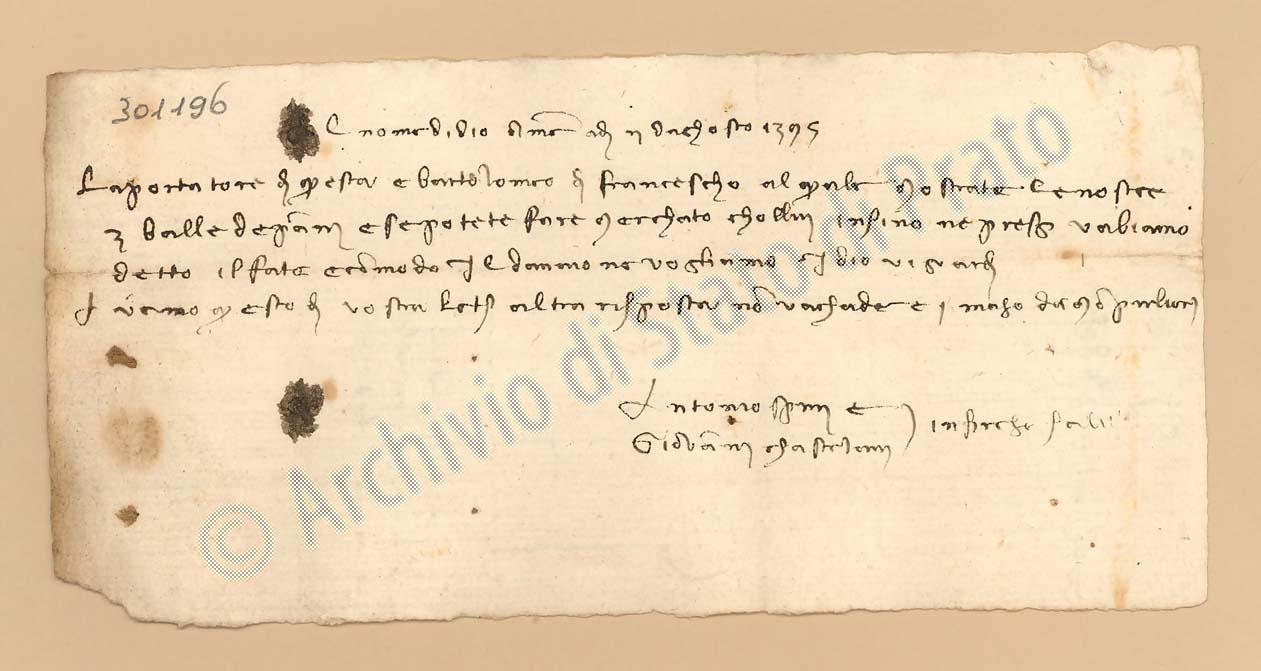 301196
Al nome di dio ame adi 11 daghosto 1395
Laportatore di questa e bartolomeo di francescho al quale mostrate le nostre
3 balle de panni e se potete fare merchato chollui insino ne pregi vabiamo
detto il fate e chomodo il danaio ne vogliamo Idio vi guardi
I vermo questo di vostra lettera altra risposta non vachade e
Antonio e
Giovani chastelani
© Archivio di Stato di Prato